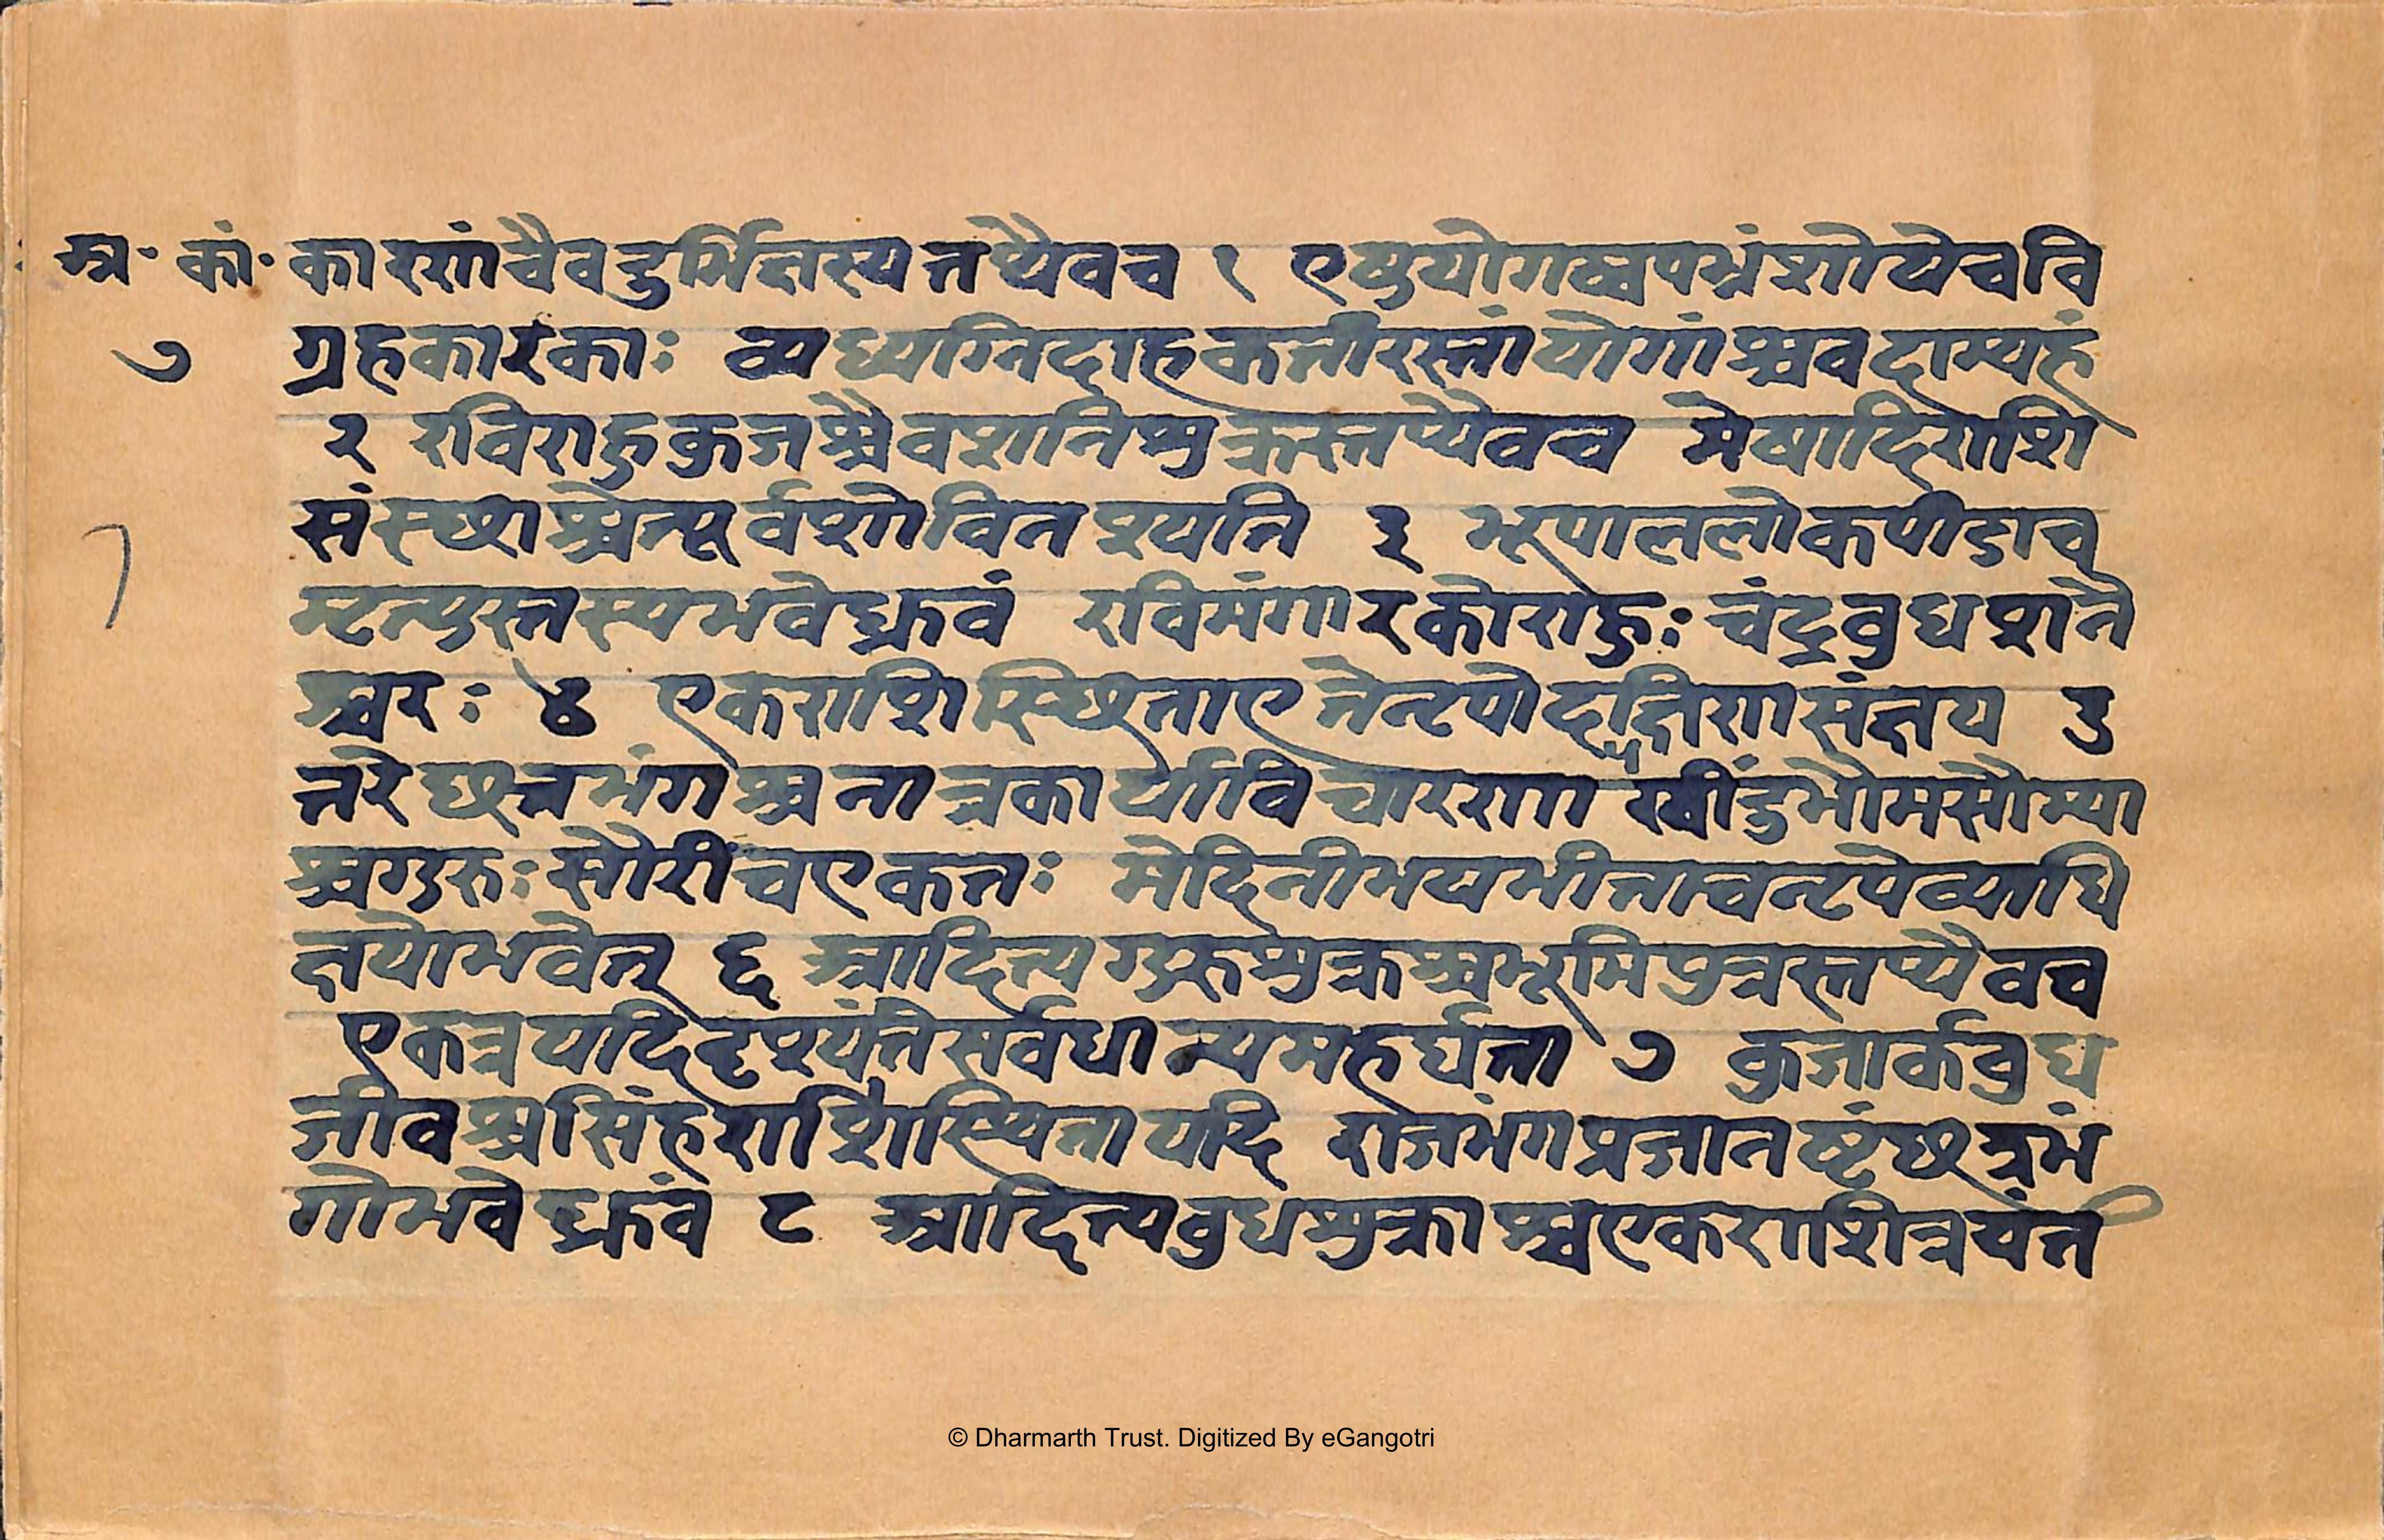 अ॰ कां॰ कारणं चैव दुर्भिक्षस्य तथैव च १ एषु योगश्च पभ्रंशो ये च वि
७ ग्रहकारकाः व्यध्यग्निदाहकर्त्तारस्तां योगांश्च वदाम्यहं
२ रविराहुकुजश्चैव शनिशुक्रस्तथैव च मेषादिराशि
संस्थाश्चेत्पूर्वशो विनश्यति ३ भूपाललोकपीडा च
7 मृत्युस्तस्य भवेध्रुवं रविमंगारको राहुः चंद्रबुधशने
श्वरः ४ एकराशिस्थिता एते नृपो दक्षिण संक्षय उ
त्तरे छत्रभंगश्च नात्र कार्या विचारणा ५ रवींदुभौमसौम्या
श्च गुरुः सौरी च एकतः मेदिनी भयभीता च नृपे व्याधि
क्षयो भवेत् ६ आदित्यगुरुशुक्रश्च भूमिपुत्रस्तथैव च
एकत्र यदि दृश्यंते सर्वधान्यमहर्घता ७ कुजार्कबुध
जीवश्च सिंहराशिस्थिता यदि राजभंग प्रजा नष्टं छत्रभं
गो भवेध्रुवं ८ आदित्यबुधशुक्राश्च एकराशित्रयं त
© Dharmarth Trust. Digitized By eGangotri